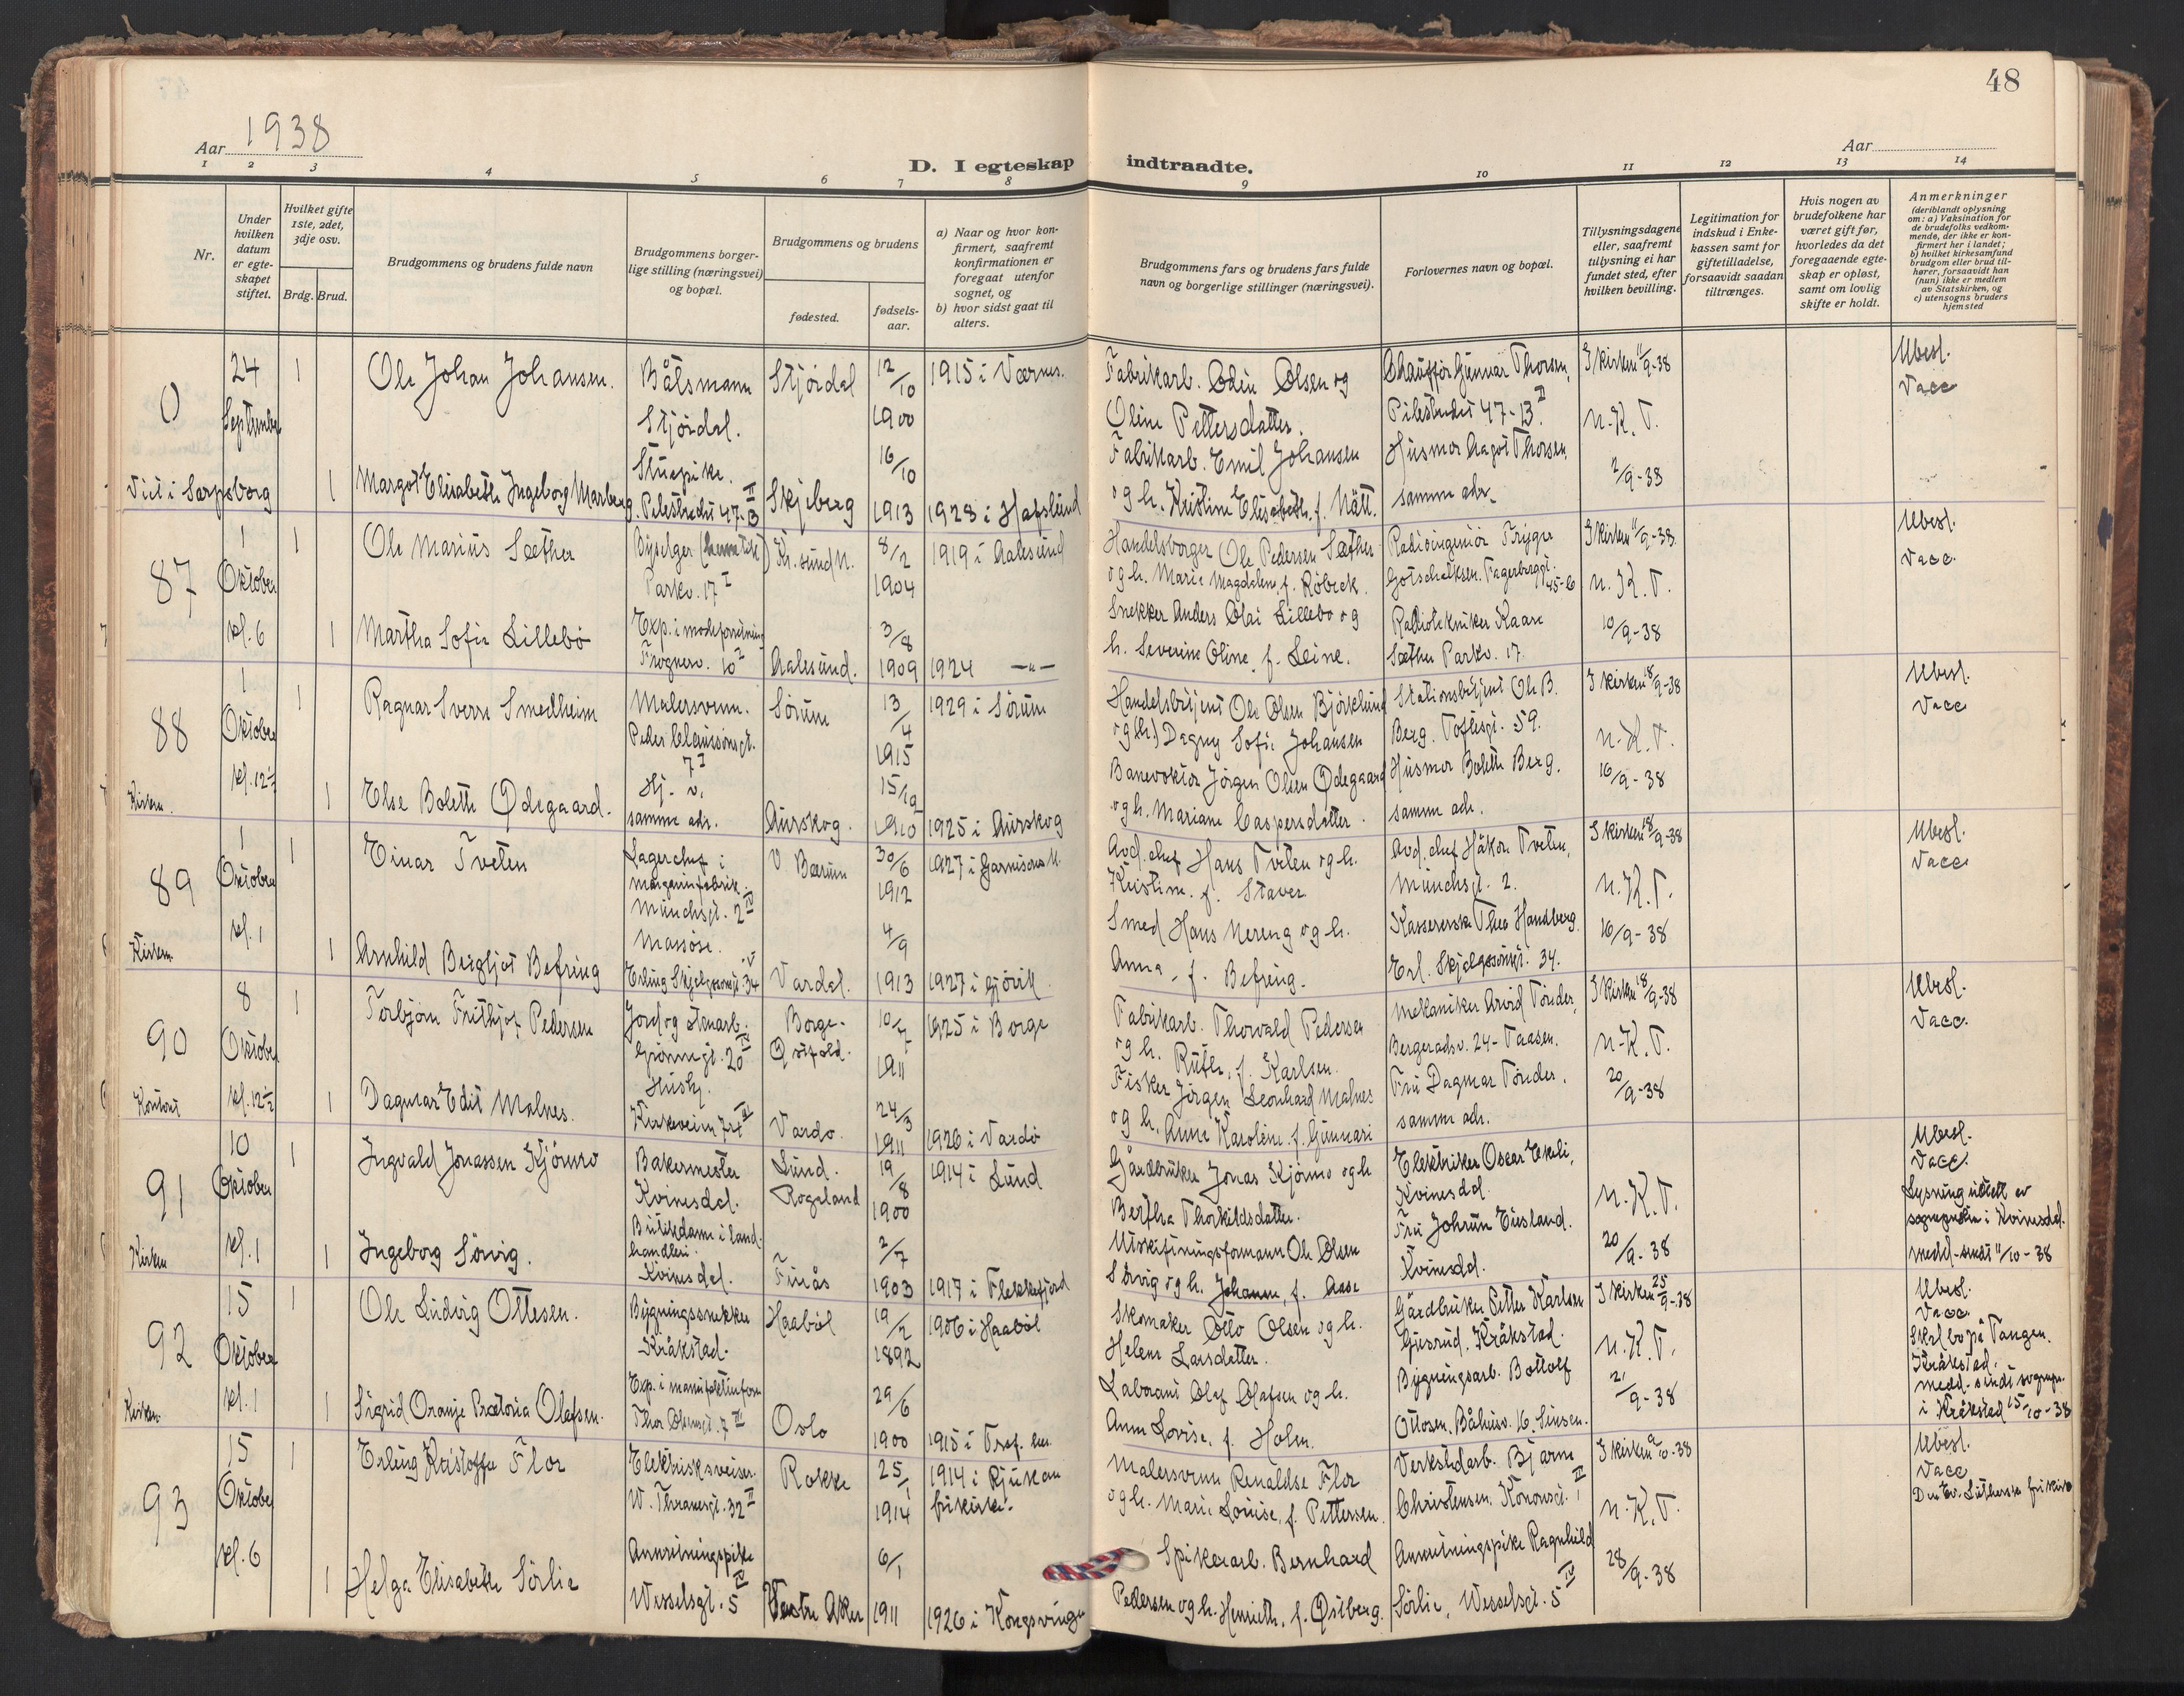 48
Aar 1938
Aar
D. I egteskap indtraadte.
1 2 3 4 5 6 7 8 9 10 11 12 13 14
Nr.
Under hvilken datum er egteskapet stiftet.
Hvilket gifte 1ste, 2det, 3dje osv.
Brdg. Brud.
Brudgommens og brudens fulde navn
Brudgommens borgerlige stilling (næringsvei) og bopæl.
Brudgommens og brudens
fødested.
fødselsaar.
a) Naar og hvor konfirmert, saafremt konfirmationen er foregaat utenfor sognet, og
b) hvor sidst gaat til alters.
Brudgommens fars og brudens fars fulde navn og borgerlige stillinger (næringsvei).
Forlovernes navn og bopæl.
Tillysningsdagene eller, saafremt tillysning ei har fundet sted, efter hvilken bevilling.
Legitimation for indskud i Enkekassen samt for giftetilladelse, forsaavidt saadan tiltrænges.
Hvis nogen av brudefolkene har været gift før, hvorledes da det foregaaende egteskap er opløst, samt om lovlig skifte er holdt.
Anmerkninger
(deriblandt oplysning om: a) Vaksination for de brudefolks vedkommende, der ikke er konfirmert her i landet; b) hvilket kirkesamfund brudgom eller brud tilhører, forsaavidt han (hun) ikke er medlem av Statskirken, og c) utensogns bruders hjemsted
0 24 September 1 Ole Johan Johansen. Båtsmann Stjørdal. Stjördal 12/10 1900 1915 i Værnes. Fabrikarb. Odin Olsen og Oline Pettersdatter. Chauffør Gunnar Thorsen, Pilestredet 47-13 II I kirken 11/9-38 n.K.T. Ubesl. Vacc
Viet i Sarpsborg 1 Margot Elisabeth Ingeborg Marberg. Stuepike. Pilestredet 47-13 II Skjeberg 16/10 1913 1928 i Hafslund Fabrikarb. Emil Johansen og h. Kristine Elisabeth, f. Nätt. Husmor Aagot Thorsen, samme adr. 2/9-38
87 1 Oktober kl. 6 1 Ole Marius Sæther Parkv. 17 I Kr.sund N. 8/2 1904 1919 i Aalesund Handelsborger Ole Pedersen Sæther og h. Marie Magdalene, f. Røbeck. Radioingeniør Trygve Gotschalksen. Fagerborggt. 45-b I kirken 11/9-38. n.K.T. Ubesl. Vacc.
1 Martha Sofie Lillebø Exp. i modeforretning Frognerv. 10 I Aalesund. 3/8 1909 1924 —"— Snekker Anders Olai Lillebø og h. Severine Oline, f. Leine. Radiotekniker Kaare Sæther Parkv. 17. 10/9-38
88 1 Oktober kl. 12½ Kirken. 1 Ragnar Sverre Smedheim Malersvenn. Peder Claussønsgt. 7 I Sørum 13/4 1915 1929 i Sørum Handelsbetjent Ole Olsen Bjørklund og (h) Dagny Sofie Johansen Stationsbetjent Ole B. Berg. Toftesgt. 59. I kirken 18/9-38 n.K.T. Ubesl. Vacc
1 Else Bolette Ødegaard. Hj. v. samme adr. Aurskog. 15/12 1910 1925 i Aurskog Banevoktor Jörgen Olsen Ødegaard og h. Mariane Caspersdatter. Husmor Bolette Berg, samme adr. 16/9-38
89 1 Oktober kl. 1 Kirken 1 Einar Tveten Lagerchef i margarinfabrik. Munchsgt. 2 IV V Bærum 30/6 1912 1927 i Garnisons M. Avd. chef Hans Tveten og h. Kristine, f. Staver Avd. chef Håkon Tveten, Munchsgt. 2. I kirken 18/9-38 n.K.T. Ubesl. Vacc
1 Arnhild Bergljot Befring Massøse. Erling Skjalgssonsgt. 34 V Vardal. 4/9 1913 1927 i Gjövik Smed Hans Nereng og h. Anna, f. Befring. Kassererske Thea Handberg, Erl. Skjalgssonsgt. 34. 16/9-38
90 8 Oktober kl. 12½ Kontoret 1 Torbjørn Frithjof Pedersen Jord og stenarb. Grønnegt. 20 IV Borge. Østfold. 10/7 1911 1925 i Borge Fabrikarb. Thorvald Pedersen og h. Ruth, f. Karlsen. Mekaniker Arvid Tönder, Bergeradsv. 24- Taasen. I kirken 18/9-38 n.K.T. Ubesl. Vacc.
1 Dagmar Edit Malnes. Hushj. Kirkeveien Vardø. 24/3 1911 1926 i Vardö Fisker Jörgen Leonhard Malnes og h. Anne Karoline, f. Gunnari Fru Dagmar Tönder, samme adr. 20/9-38
91 10 Oktober kl. 1 Kirken 1 Ingvald Jonassen Kjörmo Bakermester Kvinesdal. Lund. Rogaland 19/8 1900 1914 i Lund Gårdbruker Jonas Kjörmo og h Bertha Thorkildsdatter. Elektriker Oscar Ekeli, Kvinesdal. n.K.T. Ubesl. Vacc. Lysning utstedt av sogneprsten i Kvinesdal. medd. sendt 11/10-38
1 Ingeborg Sörvig. Butikkdame i landhandleri. Kvinesdal. Finås 2/7 1903 1917 i Flekkefjord Utskiftningsformann Ole Olsen Sörvig og h. Johanne, f. Aase Fru Johrun Eiesland. Kvinesdal. 20/9-38
92 15 Oktober kl. 1 Kirken. 1 Ole Ludvig Ottesen. Bygningssnekker Kråkstad. Haaböl 19/2 1892 1906 i Haaböl Skomaker Otto Olsen og h. Helene Larsdatter. Gårdbruker Petter Karlsen Gjesrud. Kråkstad. I kirken 25/9-38 n.K.T. Ubesl. Vacc. Skal bo på Tangen. Kråkstad. medd. sendt sognepr. i Kråkstad 15/10-38
1 Sigrid Oranje Prætoria Olafsen. Exp. i manufakturforr. Thor Olsensgt. 7 III Oslo 29/6 1900 1915 i Tref. hm. Laborant Olaf Olafsen og h. Anna Lovise, f. Holm. Bygningsarb. Bottolf Ottosen. Båhusv. 16. Sinsen. 21/9-38
93 15 Oktober kl. 6 1 Erling Kristoffer Flor Elektrisksveiser. W. Thranesgt. 32 II Rakke 25/1 1914 1914 i Rjukan frikirke. Malersvenn Renaldse Flor og h. Marie Louise, f. Pettersen. Verkstedarb. Bjarne Christensen. I kirken 9/10-38 n.K.T. Ubesl. Vacc Den Ev. Lutherske frikirke
1 Helga Elisabeth Sörlie Anretningspike Wesselsgt. 5 IV Vestre Aker 6/1 1911 1926 i Kongsvinger Spikerarb. Bernhard Pedersen og h. Henriette, f. Østberg. Anretningspike Ragnhild Sörlie, Wesselsgt. 5 IV 28/9-38